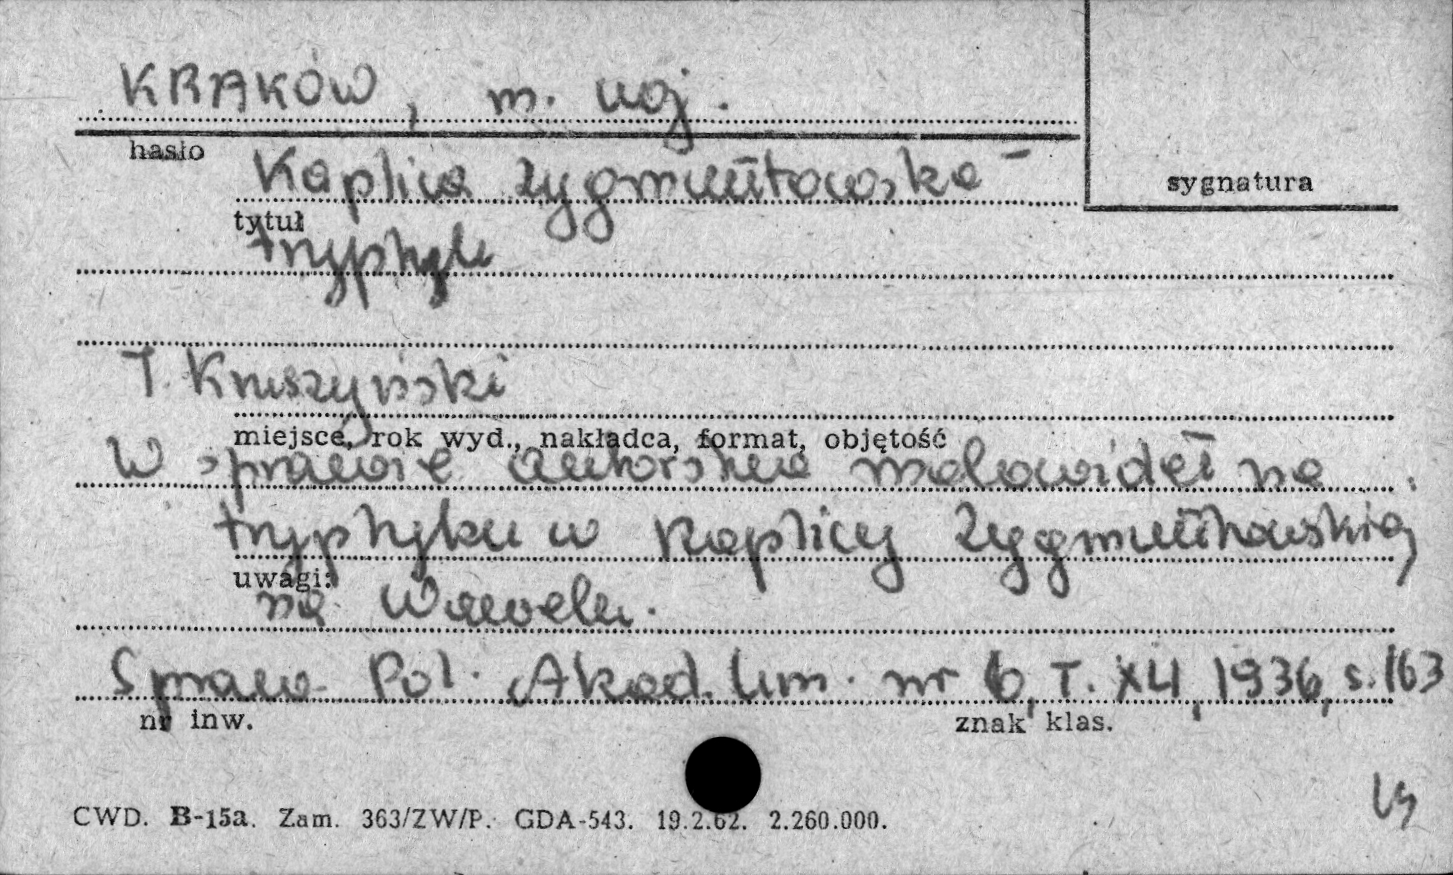 KRAKÓW, m. woj.
hasło
Kaplica Zygmuntowska –
sygnatura
tytuł
tryptyk
T. Kruszyński
miejsce, rok wyd., nakładca, format, objętość
W sprawie autorstwa malowideł na
tryptyku w Kaplicy Zygmuntowskiej
uwagi:
na Wawelu.
Spraw. Pol. Akad. Um. nr 6, T. XLI, 1936, s. 163
nr inw.
znak klas.
CWD. B-15a. Zam. 363/ZW/P. GDA-543. 19.2.62. 2.260.000.